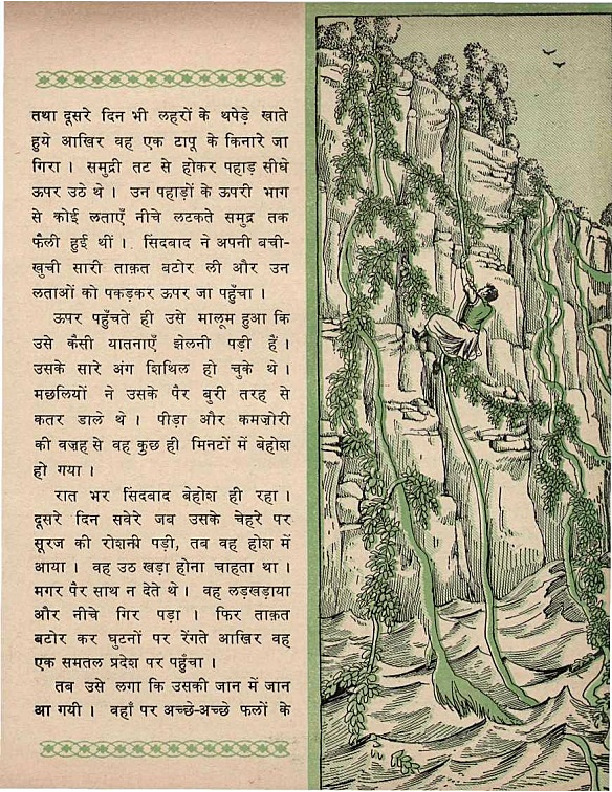 तथा दूसरे दिन भी लहरों के थपेड़े खाते
हुये आखिर वह एक टापू के किनारे जा
गिरा । समुद्री तट से होकर पहाड़ सीधे
ऊपर उठे थे । उन पहाड़ों के ऊपरी भाग
से कोई लताएँ नीचे लटकते समुद्र तक
फैली हुई थीं । सिंदबाद ने अपनी बची-
खुची सारी ताक़त बटोर ली और उन
लताओं को पकड़कर ऊपर जा पहुँचा ।
ऊपर पहुँचते ही उसे मालूम हुआ कि
उसे कैसी यातनाएँ झेलनी पड़ी हैं ।
उसके सारे अंग शिथिल हो चुके थे ।
मछलियों ने उसके पैर बुरी तरह से
कतर डाले थे । पीड़ा और कमज़ोरी
की वज़ह से वह कुछ ही मिनटों में बेहोश
हो गया ।
रात भर सिंदबाद बेहोश ही रहा ।
दूसरे दिन सवेरे जब उसके चेहरे पर
सूरज की रोशनी पड़ी, तब वह होश में
आया । वह उठ खड़ा होना चाहता था ।
मगर पैर साथ न देते थे । वह लड़खड़ाया
और नीचे गिर पड़ा । फिर ताक़त
बटोर कर घुटनों पर रेंगते आखिर वह
एक समतल प्रदेश पर पहुँचा ।
तब उसे लगा कि उसकी जान में जान
आ गयी । वहाँ पर अच्छे-अच्छे फलों के